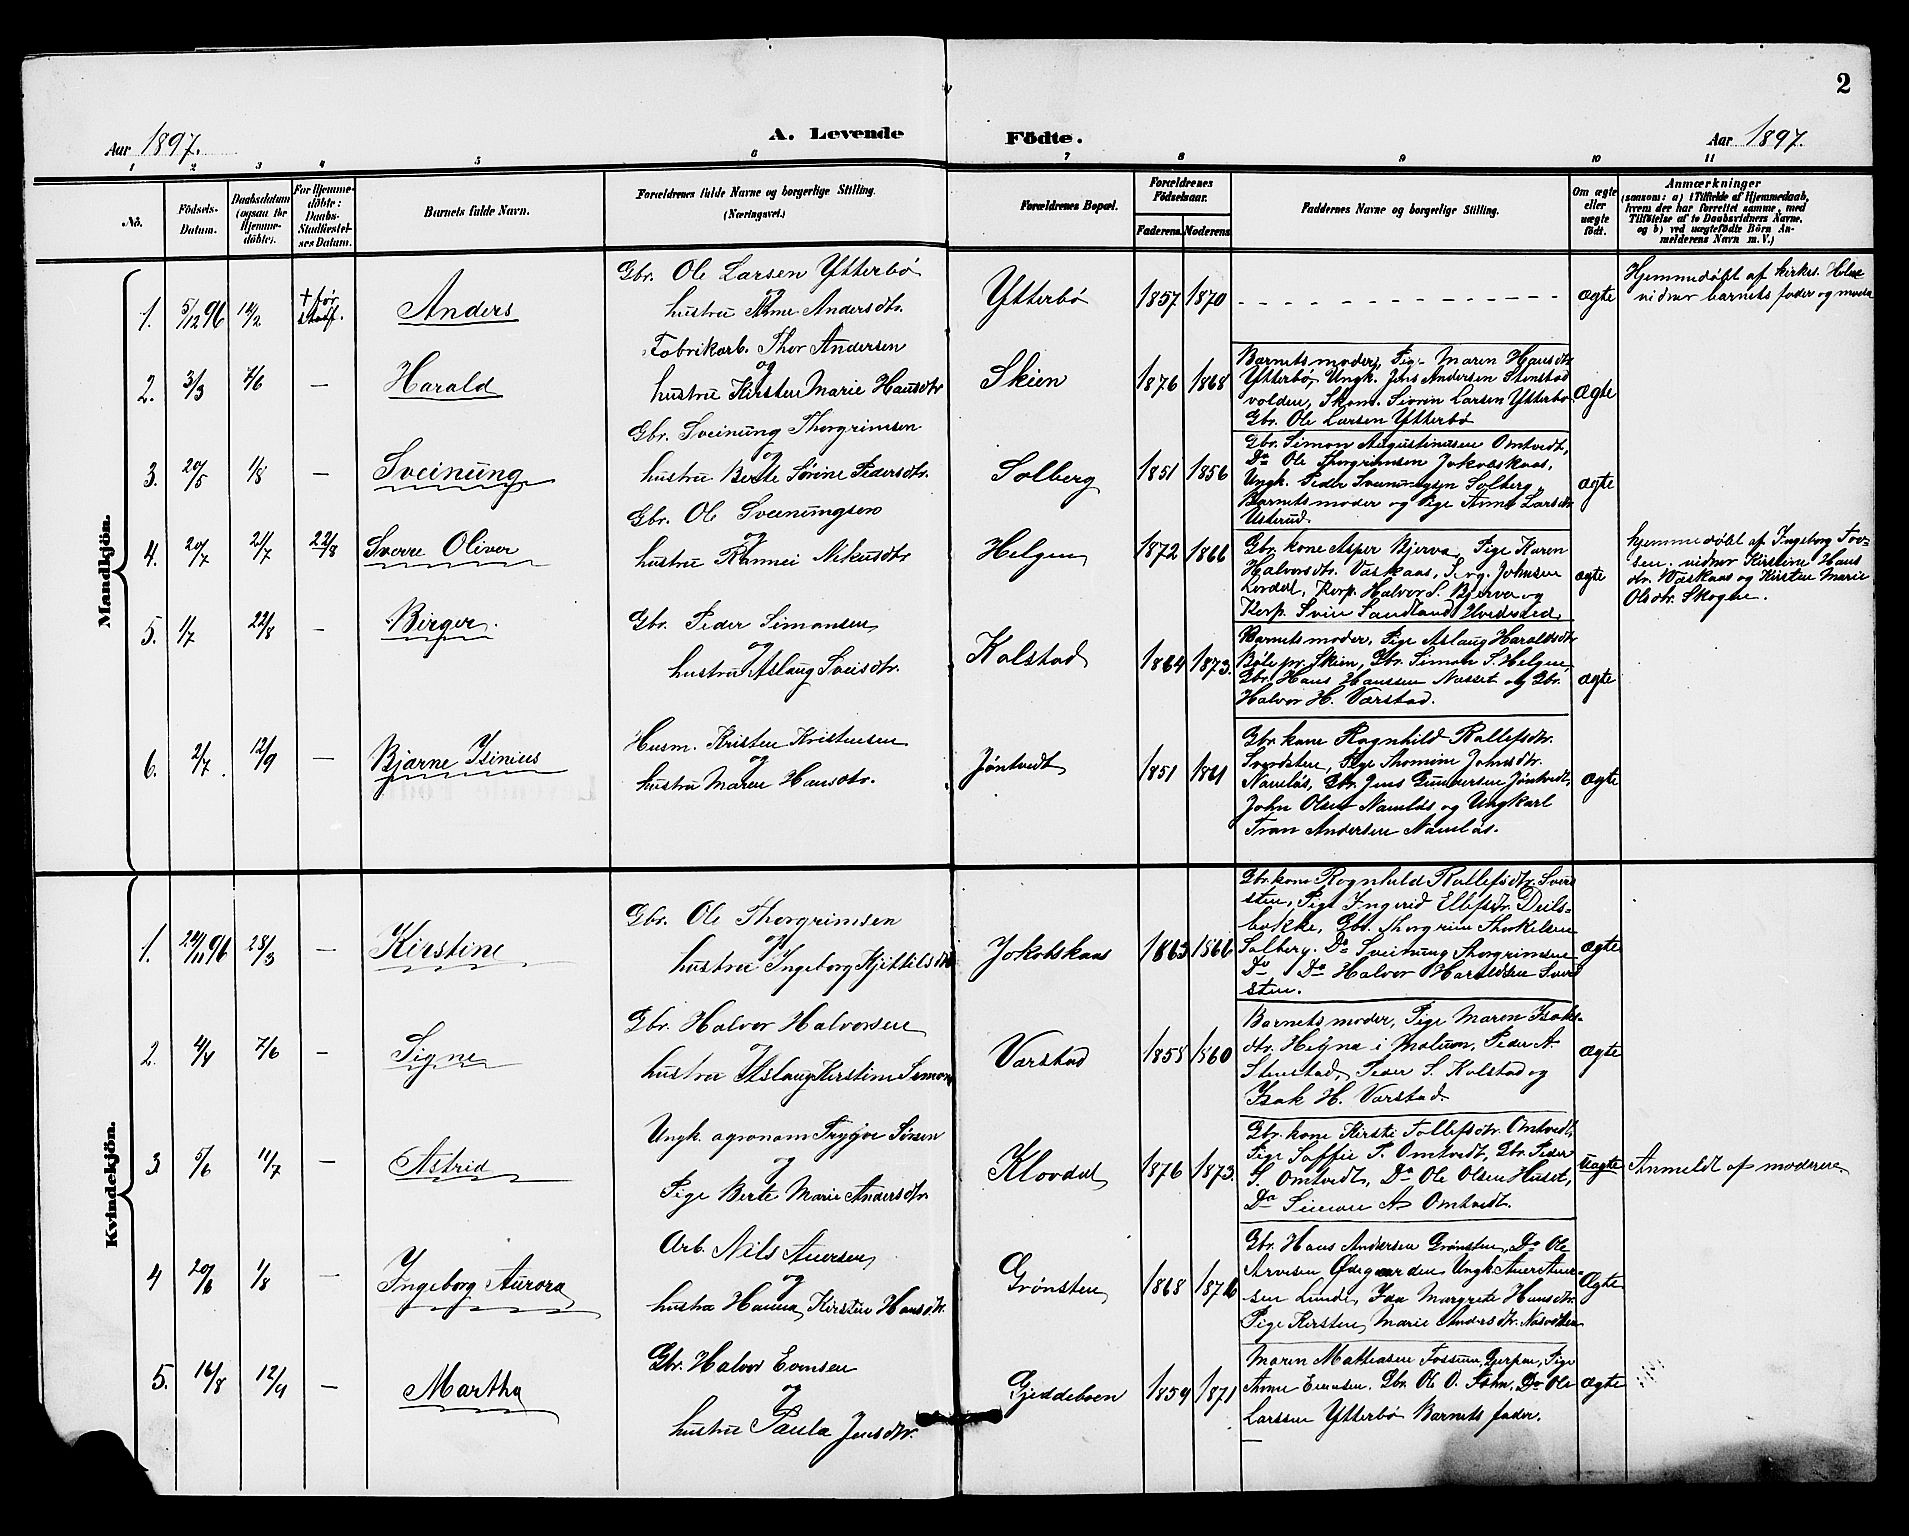 2
Aar 1897.
A. Levende Födte.
Aar 1897.
1 2 3 4 5 6 7 8 9 10 11
No.
Födsels-Datum.
Daabsdatum (ogsaa for Hjemme-döbte).
For Hjemme-döbte: Daabs-Stadfæstel-ses Datum.
Barnets fulde Navn.
Forældrenes fulde Navne og borgerlige Stilling.
(Næringsvei.)
Forældrenes Bopæl.
Forældrenes Födselsaar.
Faderens. Moderens.
Faddernes Navne og borgerlige Stilling.
Om ægte eller uægte födt.
Anmærkninger
(saasom: a) i Tilfælde af Hjemmedaab,
hvem der har forrettet samme, med
Tilföielse af to Daabsvidners Navne,
og b) ved uægtefödte Börn An-
melderens Navn m. V.)
Mandkjön.
1. 5/12 96 14/2 + før stadf. Anders
Gbr. Ole Larsen Ytterbø
og
hustru Anne Andersdtr.
Ytterbø 1857 1870 ægte
Hjemmedøbt af kirkes.
vidner barnets fader og
2. 3/3 7/6 — Harald
Fabrikarb. Thor Andersen
og
hustru Kirsten Marie Hansdtr
Skien 1876 1868
Barnets moder, Pige Maren Hansdtr
Ytterbø, Ungk. Jens Andersen Stenstad
volden, Skom. Søren Larsen Ytterbø
Gbr. Ole Larsen Ytterbø
ægte
3. 20/5 1/8 — Sveinung
Gbr. Sveinung Thorgrimsen
og
hustru Berte Sørine Pedersdtr.
Solberg 1851 1856
Gbr. Simon Augustinusen Omtvedt,
Do Ole Thorgrimsen Jokobskaas,
Ungk. Peder Sveinungsen Solberg,
Barnets moder og Pige Anne Larsdtr
Usterud.
ægte
4. 20/7 21/7 22/8 Sverre Oliver
Gbr. Ole Sveinungsen
og
hustru Rannei Nikusdtr
Helgen 1872 1866
Gbr. kone Asper Bjerva, Pige Karen
Halvorsdtr. Vaskaas, Johnsen
Korp. Halvor S. Bjerva og
Korp. Svein Sandland Hvidersted
ægte
hjemmedøbt af Ingeborg Tov-
sen. vidner Kirstine Hans
dtr. Vaskaas og Kirsten Marie
Olsdtr. Skogen.
5. 1/7 22/8 — Birger.
Gbr. Peder Simonsen
og
hustru Aslaug Sveisdtr.
Kolstad 1864 1873.
Barnets moder, Pige Aslaug Haraldsdtr
Bøle pr. Skien, Gbr. Simon S. Helgen,
Gbr. Hans Hanssen Næset og Gbr.
Halvor H. Varstad.
ægte
6. 2/7. 12/9 — Bjarne Isinius
Husm. Kristen Kristensen
og
hustru Maren Hansdtr.
Jøntvedt 1851 1861
Gbr. kone Ragnhild Rollefsdtr.
Pige Thomine Johnsdtr.
Namløs, Gbr. Jens Gundersen Jøntvedt,
John Olsen Namløs og Ungkarl
Andersen Namløs.
ægte
Kvindekjön.
1. 24/11 96 28/3 — Kirstine
Gbr. Ole Thorgrimsen
og
hustru Ingeborg Kjittilsdtr
Jokobskaas 1863 1866
Gbr. kone Ragnhild Rollefsdtr. Sveis
sten, Pige Ingerid Ellefsdtr. Deils-
bakke, Gbr. Thorgrim Thorkelsen
Solberg. Do Sveinung Thorgrimsen
Do Do Halvor Haraldsen Sveis
sten.
ægte
2. 4/4 7/6 — Signe
Gbr. Halvor Halvorsen
og
hustru Aslaug Kirstine Simons
Varstad 1858 1860
Barnets moder, Pige Maren Isaks-
dtr. Hegna i Melum, Peder A.
Stenstad, Peder S. Kolstad og
Isak H. Varstad.
ægte
3 5/6 11/7 — Astrid
Ungk. agronom Trygve Sørsen
og
Pige Berte Marie Andersdtr
Klovdal 1876 1873.
Gbr. kone Kirsti Tollefsdtr. Omtvedt,
Pige Soffie P. Omtvedt, Gbr. Peder
S. Omtvedt, Do Ole Olsen Huset,
Do Simon A. Omtvedt.
uægte
Anmeldt af moderen.
4 20/6 1/8 — Ingeborg Aurora
Arb. Nils Auersen
og
hustru Hanna Kirstine Hansdtr.
Grønsten 1868 1876
Gbr. Hans Andersen Grønsten, Do Ole
Arvesen Ødegaarden Ungk. Auer Auer-
sen Lunde, Margrete Hansdtr.
Pige Kirsten Marie Andersdtr.
Ægte
5. 16/8 12/9 — Martha
Gbr. Halvor Evensen
og
hustru Paula Jensdtr.
Gjeddeboen 1859 1871
Maren Mathiasen Fossum, Gjerpen, Pige
Anne Evensen, Gbr. Ole O. Do Ole
Larssen Ytterbø Barnets fader.
ægte